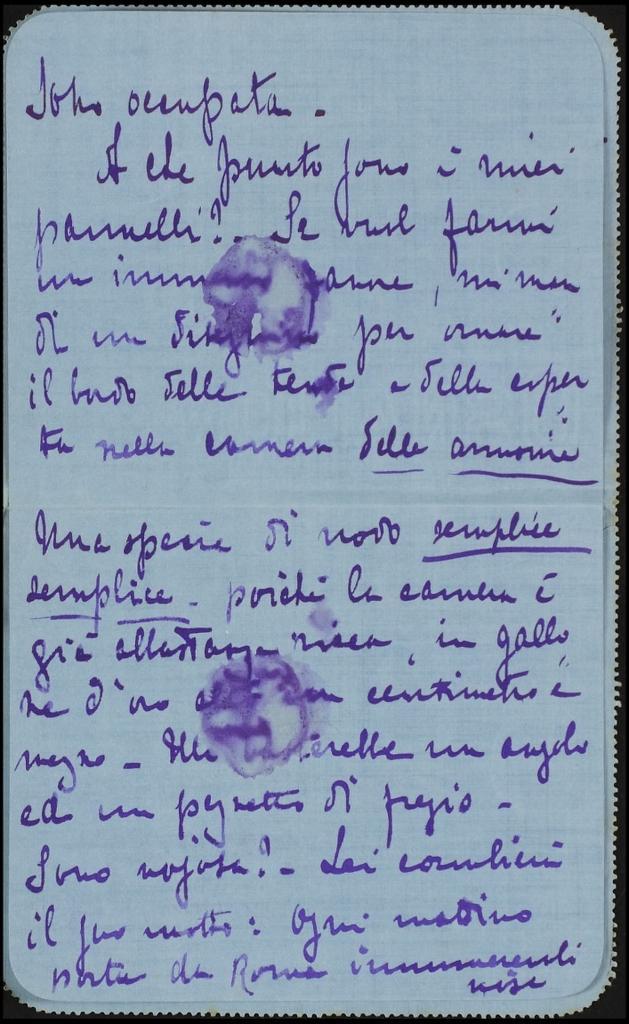 Sono occupata.
A che punto sono i miei
pannelli? Se vuol farmi
un, mi man
di un disegno per ornare
il bordo delle tende e della coper
ta nella camera delle armonie
Una specie di nodo semplice
semplice - poichè la camera è
già abbastanza ricca, in gallo
ne d'oro un centimetro e
mezzo - Mi basterebbe un angolo
ed un pezzetto di fregio -
Sono nojosa? - Lei cambierà
il suo motto: Ogni mattino
porta da Roma innumerevoli